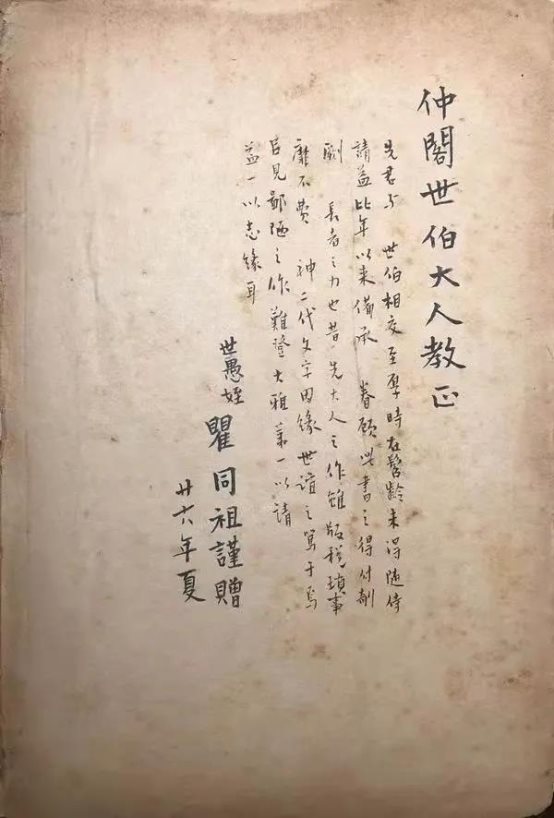 仲閣世伯大人教正
先君与 世伯相交至厚時在髫齡未得隨侍
請益比年以来備承 眷顧此書之得付剞
劂 長者之力也昔 先大人之作雖版稅瑣事
靡不費 神二代文字因緣世誼之篤于焉
 見鄙陋之作難登大雅葉一以請
益一以志緣耳
世愚姪 瞿同祖謹贈
廿六年夏